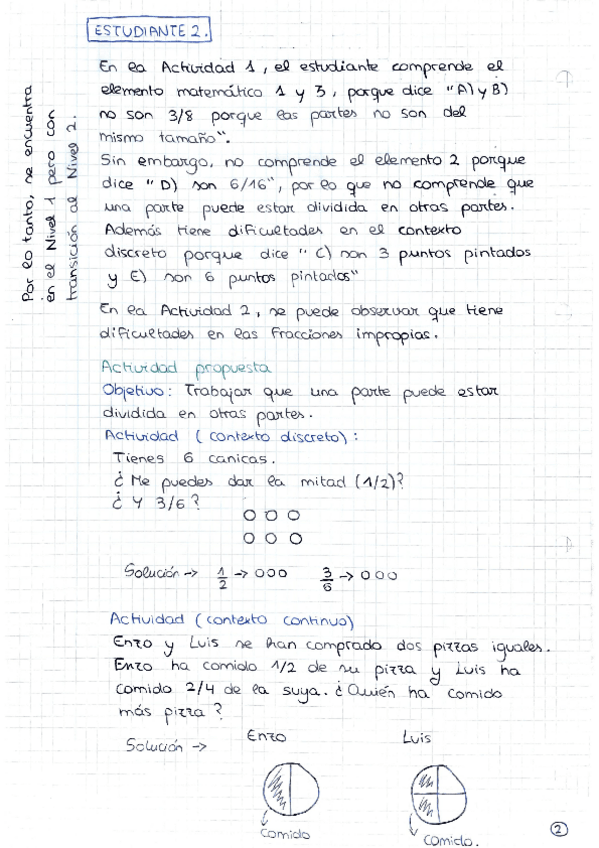 ESTUDIANTE 2.
En la Actividad 1, el estudiante comprende el
elemento matemático 1 y 3, porque dice "A) y B)
no son 3/8 porque las partes no son del
mismo tamaño".
Sin embargo, no comprende el elemento 2 porque
dice "D) son 6/16", por lo que no comprende que
una parte puede estar dividida en otras partes.
Además tiene dificultades en el contexto
discreto porque dice "C) son 3 puntos pintados
y E) son 6 puntos pintados"
En la Actividad 2, se puede observar que tiene
dificultades en las fracciones impropias.
Por lo tanto, se encuentra
en el Nivel 1 pero con
transición al Nivel 2.
Actividad propuesta
Objetivo: Trabajar que una parte puede estar
dividida en otras partes.
Actividad (contexto discreto):
Tienes 6 canicas.
¿Me puedes dar la mitad (1/2)?
¿Y 3/6?
Solución → 1/2 → 000 3/6 → 000
Actividad (contexto continuo)
Enzo y Luis se han comprado dos pizzas iguales.
Enzo ha comido 1/2 de su pizza y Luis ha
comido 2/4 de la suya. ¿Quién ha comido
más pizza?
Solución → Enzo Luis
Comido comido.
2